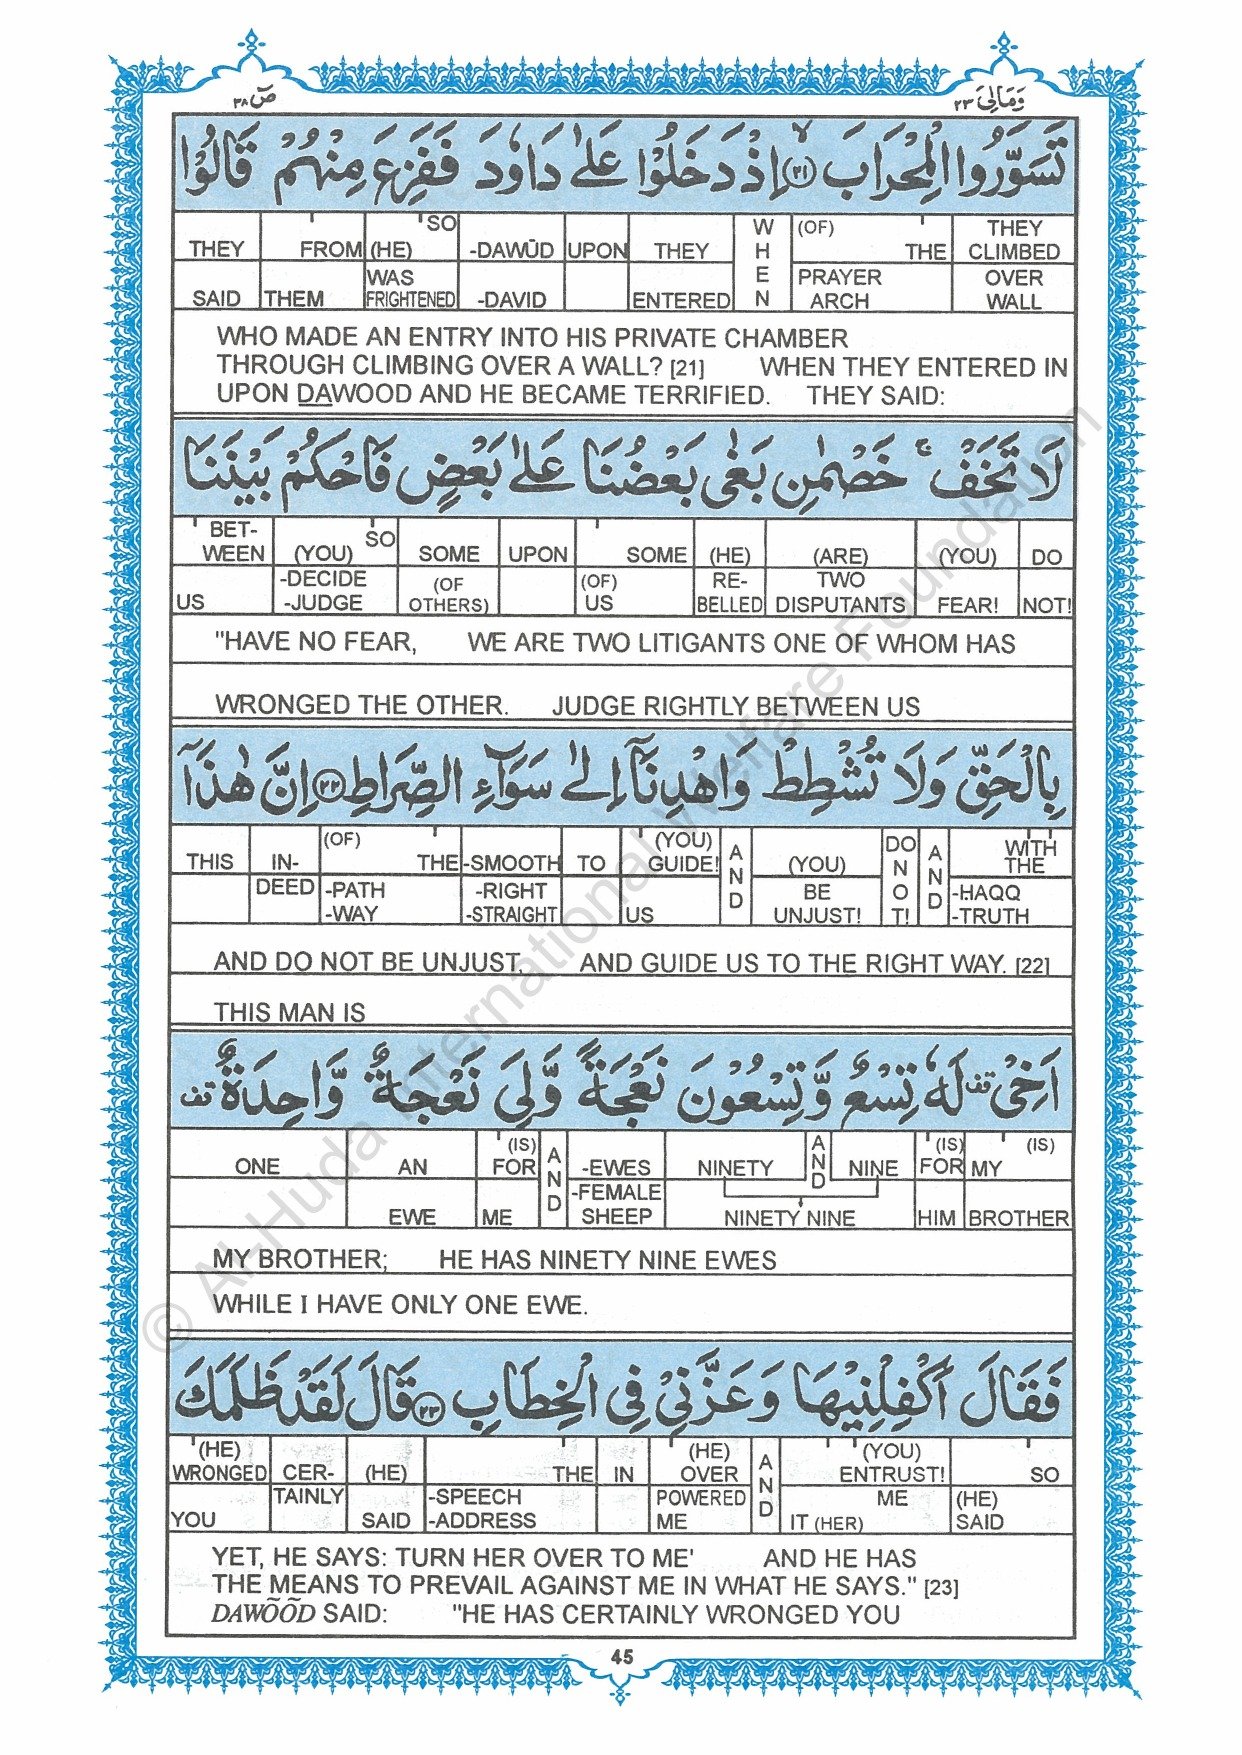 وَمَالِىَ ٢٣
صٓ ٣٨
تَسَوَّرُوا الْمِحْرَابَ ﴿٢١﴾ۙ اِذْ دَخَلُوْا عَلٰى دَاوٗدَ فَفَزِعَ مِنْهُمْ قَالُوْا
THEY FROM (HE) SO -DAWŪD UPON THEY WHEN (OF) THE THEY CLIMBED
SAID THEM WAS FRIGHTENED -DAVID ENTERED PRAYER ARCH OVER WALL
WHO MADE AN ENTRY INTO HIS PRIVATE CHAMBER
THROUGH CLIMBING OVER A WALL? [21] WHEN THEY ENTERED IN
UPON DAWOOD AND HE BECAME TERRIFIED. THEY SAID:
لَا تَخَفْ ۚ خَصْمٰنِ بَغٰى بَعْضُنَا عَلٰى بَعْضٍ فَاحْكُمْ بَيْنَنَا
BET-WEEN (YOU) SO SOME UPON SOME (HE) (ARE) (YOU) DO
US -DECIDE -JUDGE (OF OTHERS) (OF) US RE-BELLED TWO DISPUTANTS FEAR! NOT!
"HAVE NO FEAR, WE ARE TWO LITIGANTS ONE OF WHOM HAS
WRONGED THE OTHER. JUDGE RIGHTLY BETWEEN US
بِالْحَقِّ وَلَا تُشْطِطْ وَاهْدِنَاۤ اِلٰى سَوَآءِ الصِّرَاطِ ﴿٢٢﴾ اِنَّ هٰذَاۤ
THIS IN- (OF) THE -SMOOTH TO (YOU) GUIDE! AND (YOU) DO NOT! AND WITH THE
DEED -PATH -WAY -RIGHT -STRAIGHT US BE UNJUST! -HAQQ -TRUTH
AND DO NOT BE UNJUST. AND GUIDE US TO THE RIGHT WAY. [22]
THIS MAN IS
اَخِىْ ۟قف لَهٗ تِسْعٌ وَّتِسْعُوْنَ نَعْجَةً وَّلِىَ نَعْجَةٌ وَّاحِدَةٌ ۟قف
ONE AN (IS) FOR AND -EWES NINETY AND NINE (IS) FOR MY (IS)
EWE ME -FEMALE SHEEP NINETY NINE HIM BROTHER
MY BROTHER; HE HAS NINETY NINE EWES
WHILE I HAVE ONLY ONE EWE.
فَقَالَ اَكْفِلْنِيْهَا وَعَزَّنِىْ فِى الْخِطَابِ ﴿٢٣﴾ قَالَ لَقَدْ ظَلَمَكَ
(HE) WRONGED CER- (HE) THE IN (HE) OVER AND (YOU) ENTRUST! SO
YOU TAINLY SAID -SPEECH -ADDRESS POWERED ME ME IT (HER) (HE) SAID
YET, HE SAYS: TURN HER OVER TO ME' AND HE HAS
THE MEANS TO PREVAIL AGAINST ME IN WHAT HE SAYS." [23]
DAWÕÕD SAID: "HE HAS CERTAINLY WRONGED YOU
45
© Al-Huda International Welfare Foundation